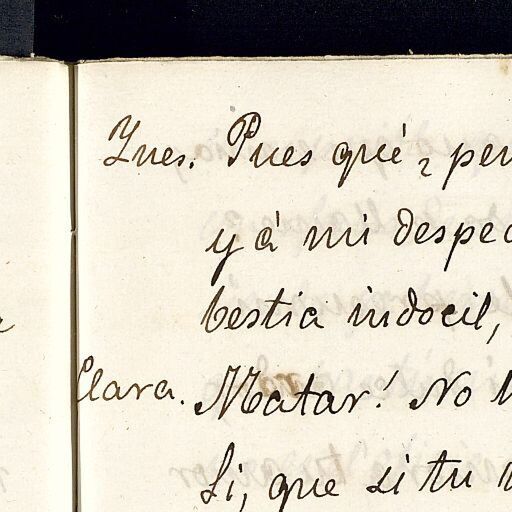 Ynes. Pues qué, pen
y á mi despec
bestia indocil,
Clara. Matar! No
Si, que si tu